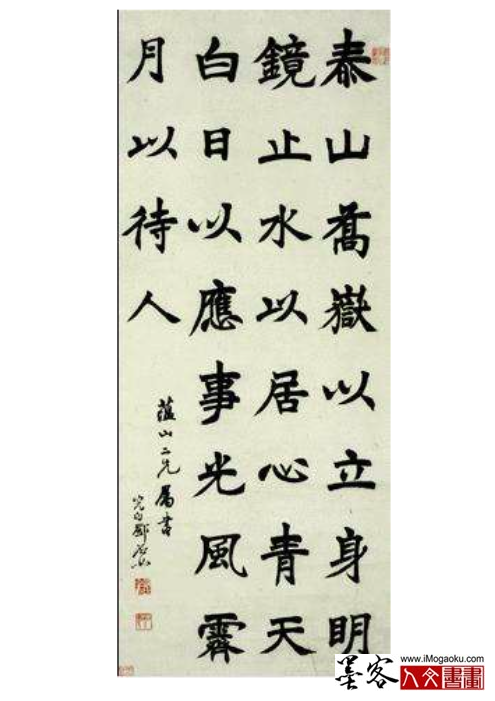 泰山喬嶽以立身明
鏡止水以居心青天
白日以應事光風霽
月以待人
蘊山二兄屬書
完白鄧石如
墨客
www.iMogaoku.com
人文書畫